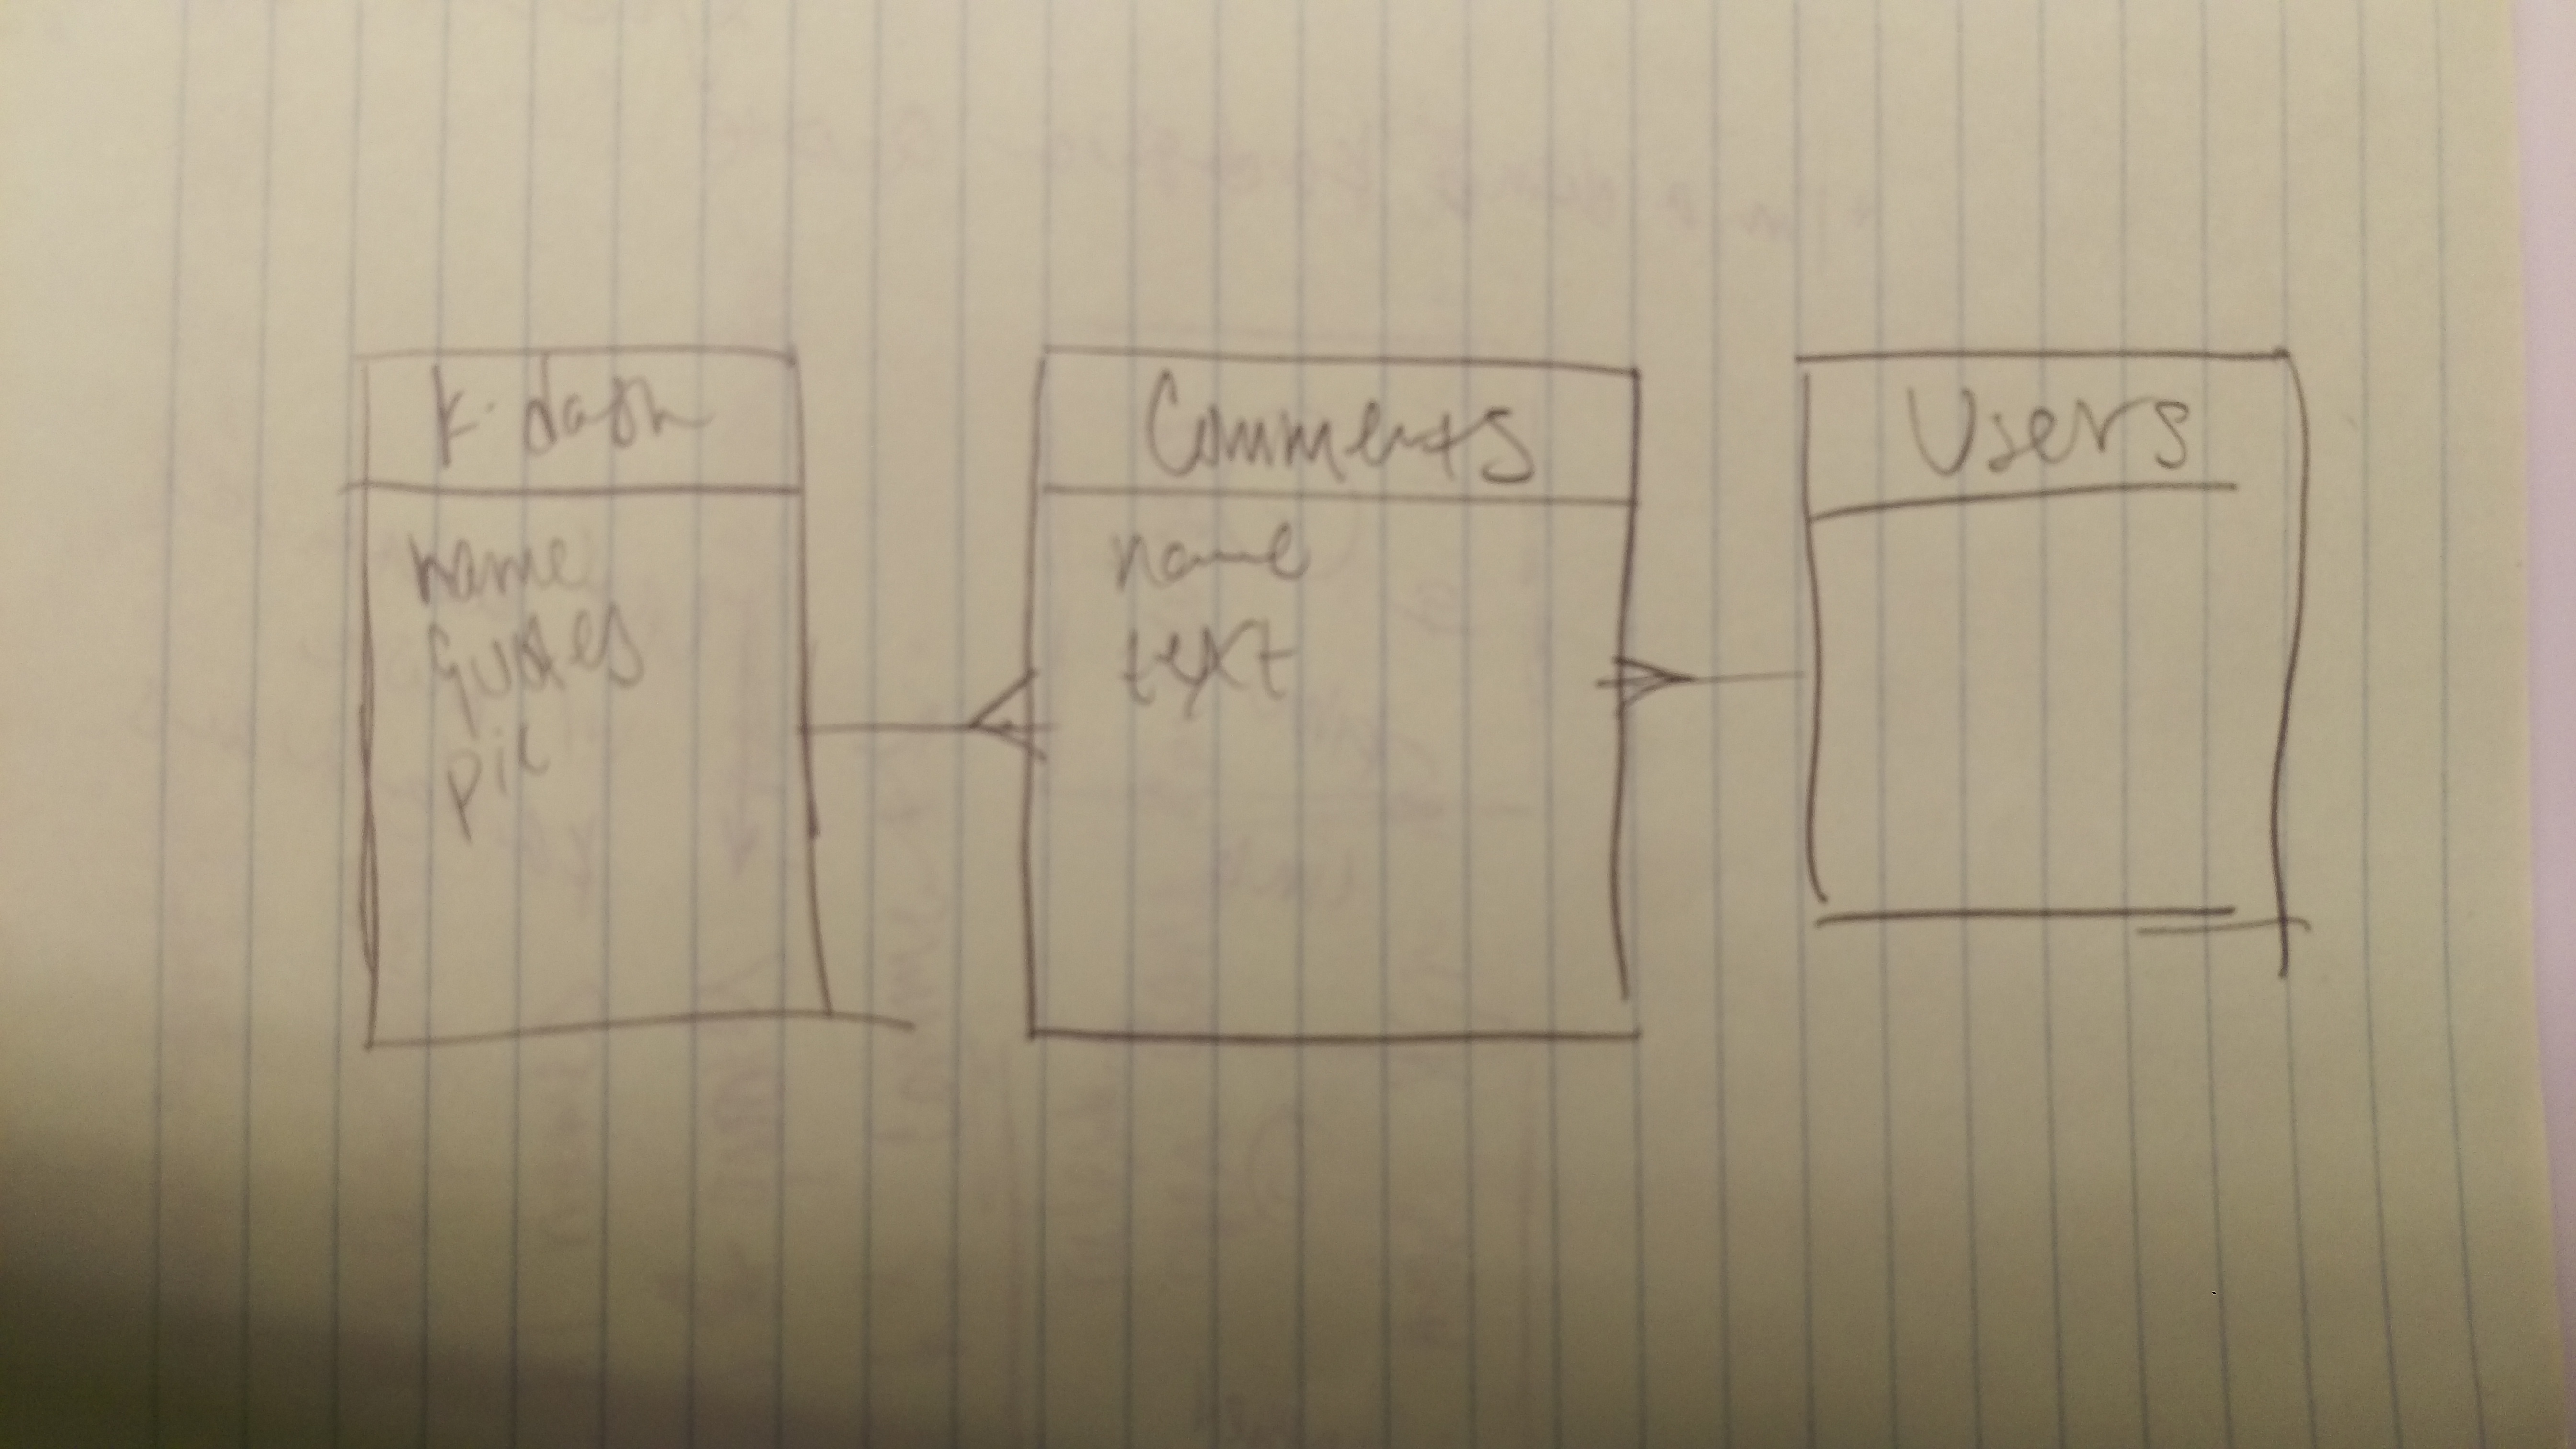 k. dash
name
quotes
pic
Comments
name
text
Users